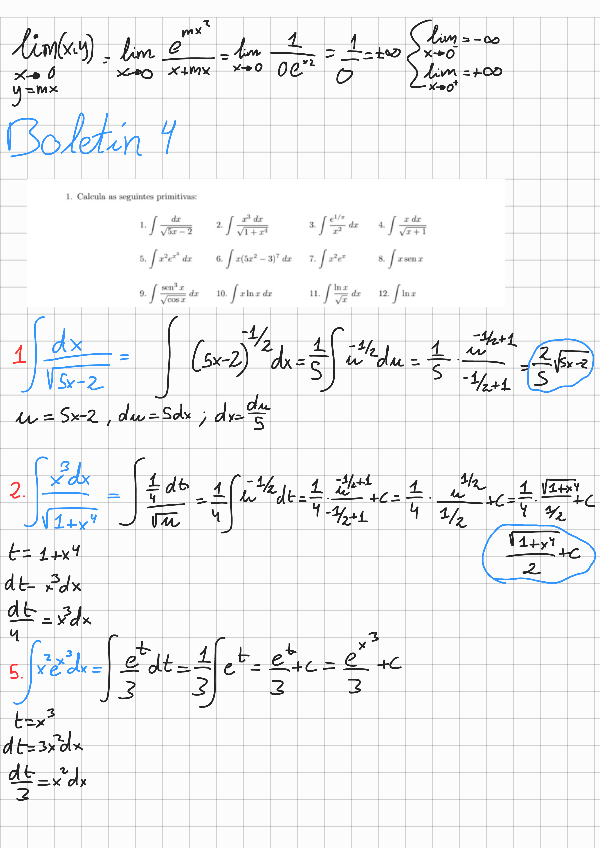 lim(x,y) = lim e^{mx²}/(x+mx) = lim 1/(0e^{x²}) = 1/0 = ±∞ { lim = -∞
x→0 x→0 x→0 x→0⁻
y=mx lim = +∞
x→0⁺
Boletín 4
1. Calcula as seguintes primitivas:
1. ∫ dx/√(5x−2) 2. ∫ x³ dx/√(1+x⁴) 3. ∫ e^{1/x}/x² dx 4. ∫ x dx/√(x+1)
5. ∫ x²e^{x³} dx 6. ∫ x(5x²−3)⁷ dx 7. ∫ x²eˣ 8. ∫ x sen x
9. ∫ sen³ x/√(cos x) dx 10. ∫ x ln x dx 11. ∫ ln x/√x dx 12. ∫ ln x
1 ∫ dx/√(5x-2) = ∫ (5x-2)^{-1/2} dx = 1/5 ∫ u^{-1/2} du = 1/5 · u^{-1/2+1}/(-1/2+1) = 2/5 √(5x-2)
u = 5x-2 , du = 5dx ; dx = du/5
2. ∫ x³dx/√(1+x⁴) = ∫ (1/4 dt)/√u = 1/4 ∫ u^{-1/2} dt = 1/4 · u^{-1/2+1}/(-1/2+1) + c = 1/4 · u^{1/2}/(1/2) + c = 1/4 · √(1+x⁴)/(1/2) + c
√(1+x⁴)/2 + c
t = 1+x⁴
dt = x³dx
dt/4 = x³dx
5. ∫ x²e^{x³}dx = ∫ e^t/3 dt = 1/3 ∫ e^t = e^t/3 + c = e^{x³}/3 + c
t = x³
dt = 3x²dx
dt/3 = x²dx